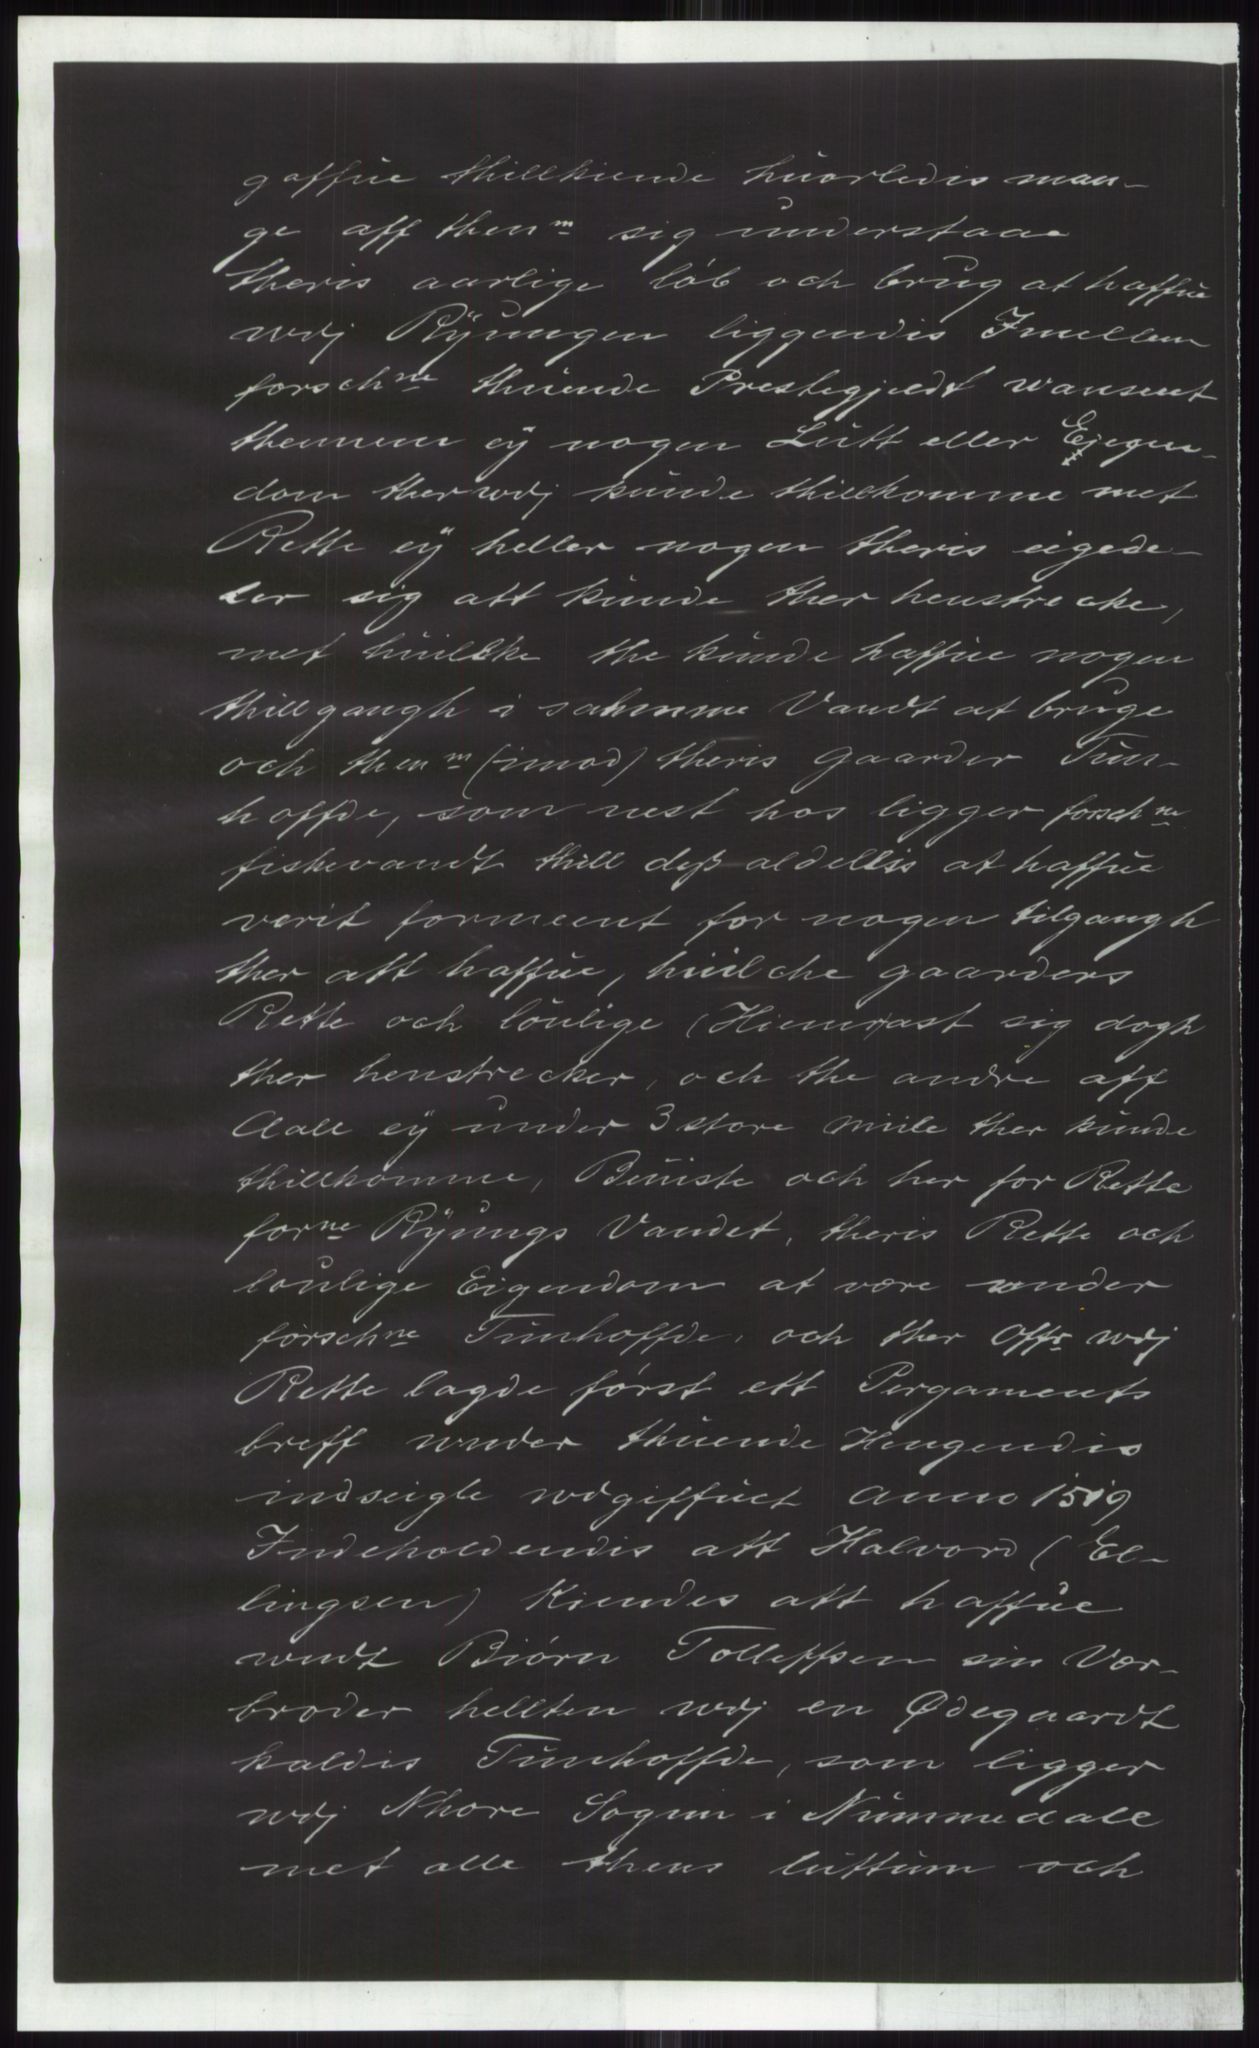 gaffue thillkiende huorledis man-
ge aff thenm sig understaae
theris aarlige løb och brug at haffue
wdj Ryungen liggendis Imellem
forschne thuende Prestegjeldt wanseet
thennem ey nogen Lutt eller Ejegen-
dom ther wdj kunde thillkomme met
Rette ey heller nogen theris eigede-
ler sig att kunde ther henstrecke,
met huilcke the kunde haffue nogen
thillgangh i samme Vandt at bruge
och thenm (imod) theris Gaarder Tun-
hoffde, som nest hos ligger forschne
fiskevandt thill dyß aldellis at haffue
verit formeent for nogen tilgangh
ther att haffue, huilche gaarders
Rette och loulige (Hiemrast sig dogh
ther henstrecker, och the andre aff
Aall ey under 3 store miile ther kunde
thillkomme, Beuiste och her for Rette
forne Ryungs Vandet, theris Rette och
loulige Eigendom at være under
forschne Tunhoffde, och ther offr wdj
Rette lagde først ett Pergaments
breff under thuende Hengendis
indseigle wdgiffuet Anno 1519
Indeholdendis att Halvord (El-
lingsen) Kiendes att haffue
undt Biørn Tolleffsen sin Vær-
broder hellten wdj en Ødegaardt
kaldis Tunhoffde, som ligger
wdj Nhore Sogun i Nummedall
met alle thens luttum och